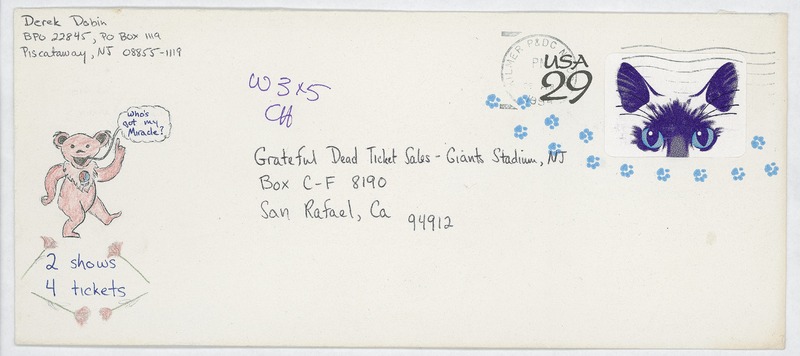 Derek Dobin
BPO 22845, PO Box 1119
Piscataway, NJ 08855-1119
W 3x5
CH
USA
29
who's
got my
Miracle?
Grateful Dead Ticket Sales - Giants Stadium, NJ
Box C-F 8190
San Rafael, Ca 94912
2 shows
4 tickets